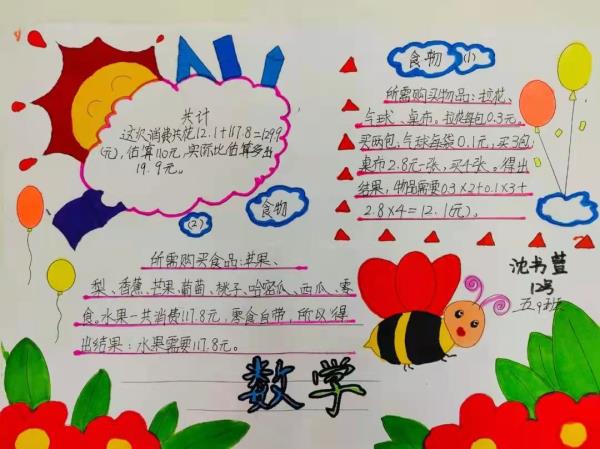 共计
这次消费共花12.1+117.8=129.9
(元),估算110元,实际比估算多出
19.9元。
食物
(1)
所需购买物品:拉花、
气球、桌布。拉花每包0.3元。
买两包,气球每袋0.1元,买3包
桌布2.8元一张,买4张。得出
结果,物品需要0.3×2+0.1×3+
2.8×4=12.1(元)。
(2)
食物
所需购买食品:苹果、
梨、香蕉、芒果、葡萄、桃子、哈密瓜、西瓜、零
食。水果一共消费117.8元,零食自带,所以得
出结果:水果需要117.8元。
沈书萱
12号
五.9班
数学